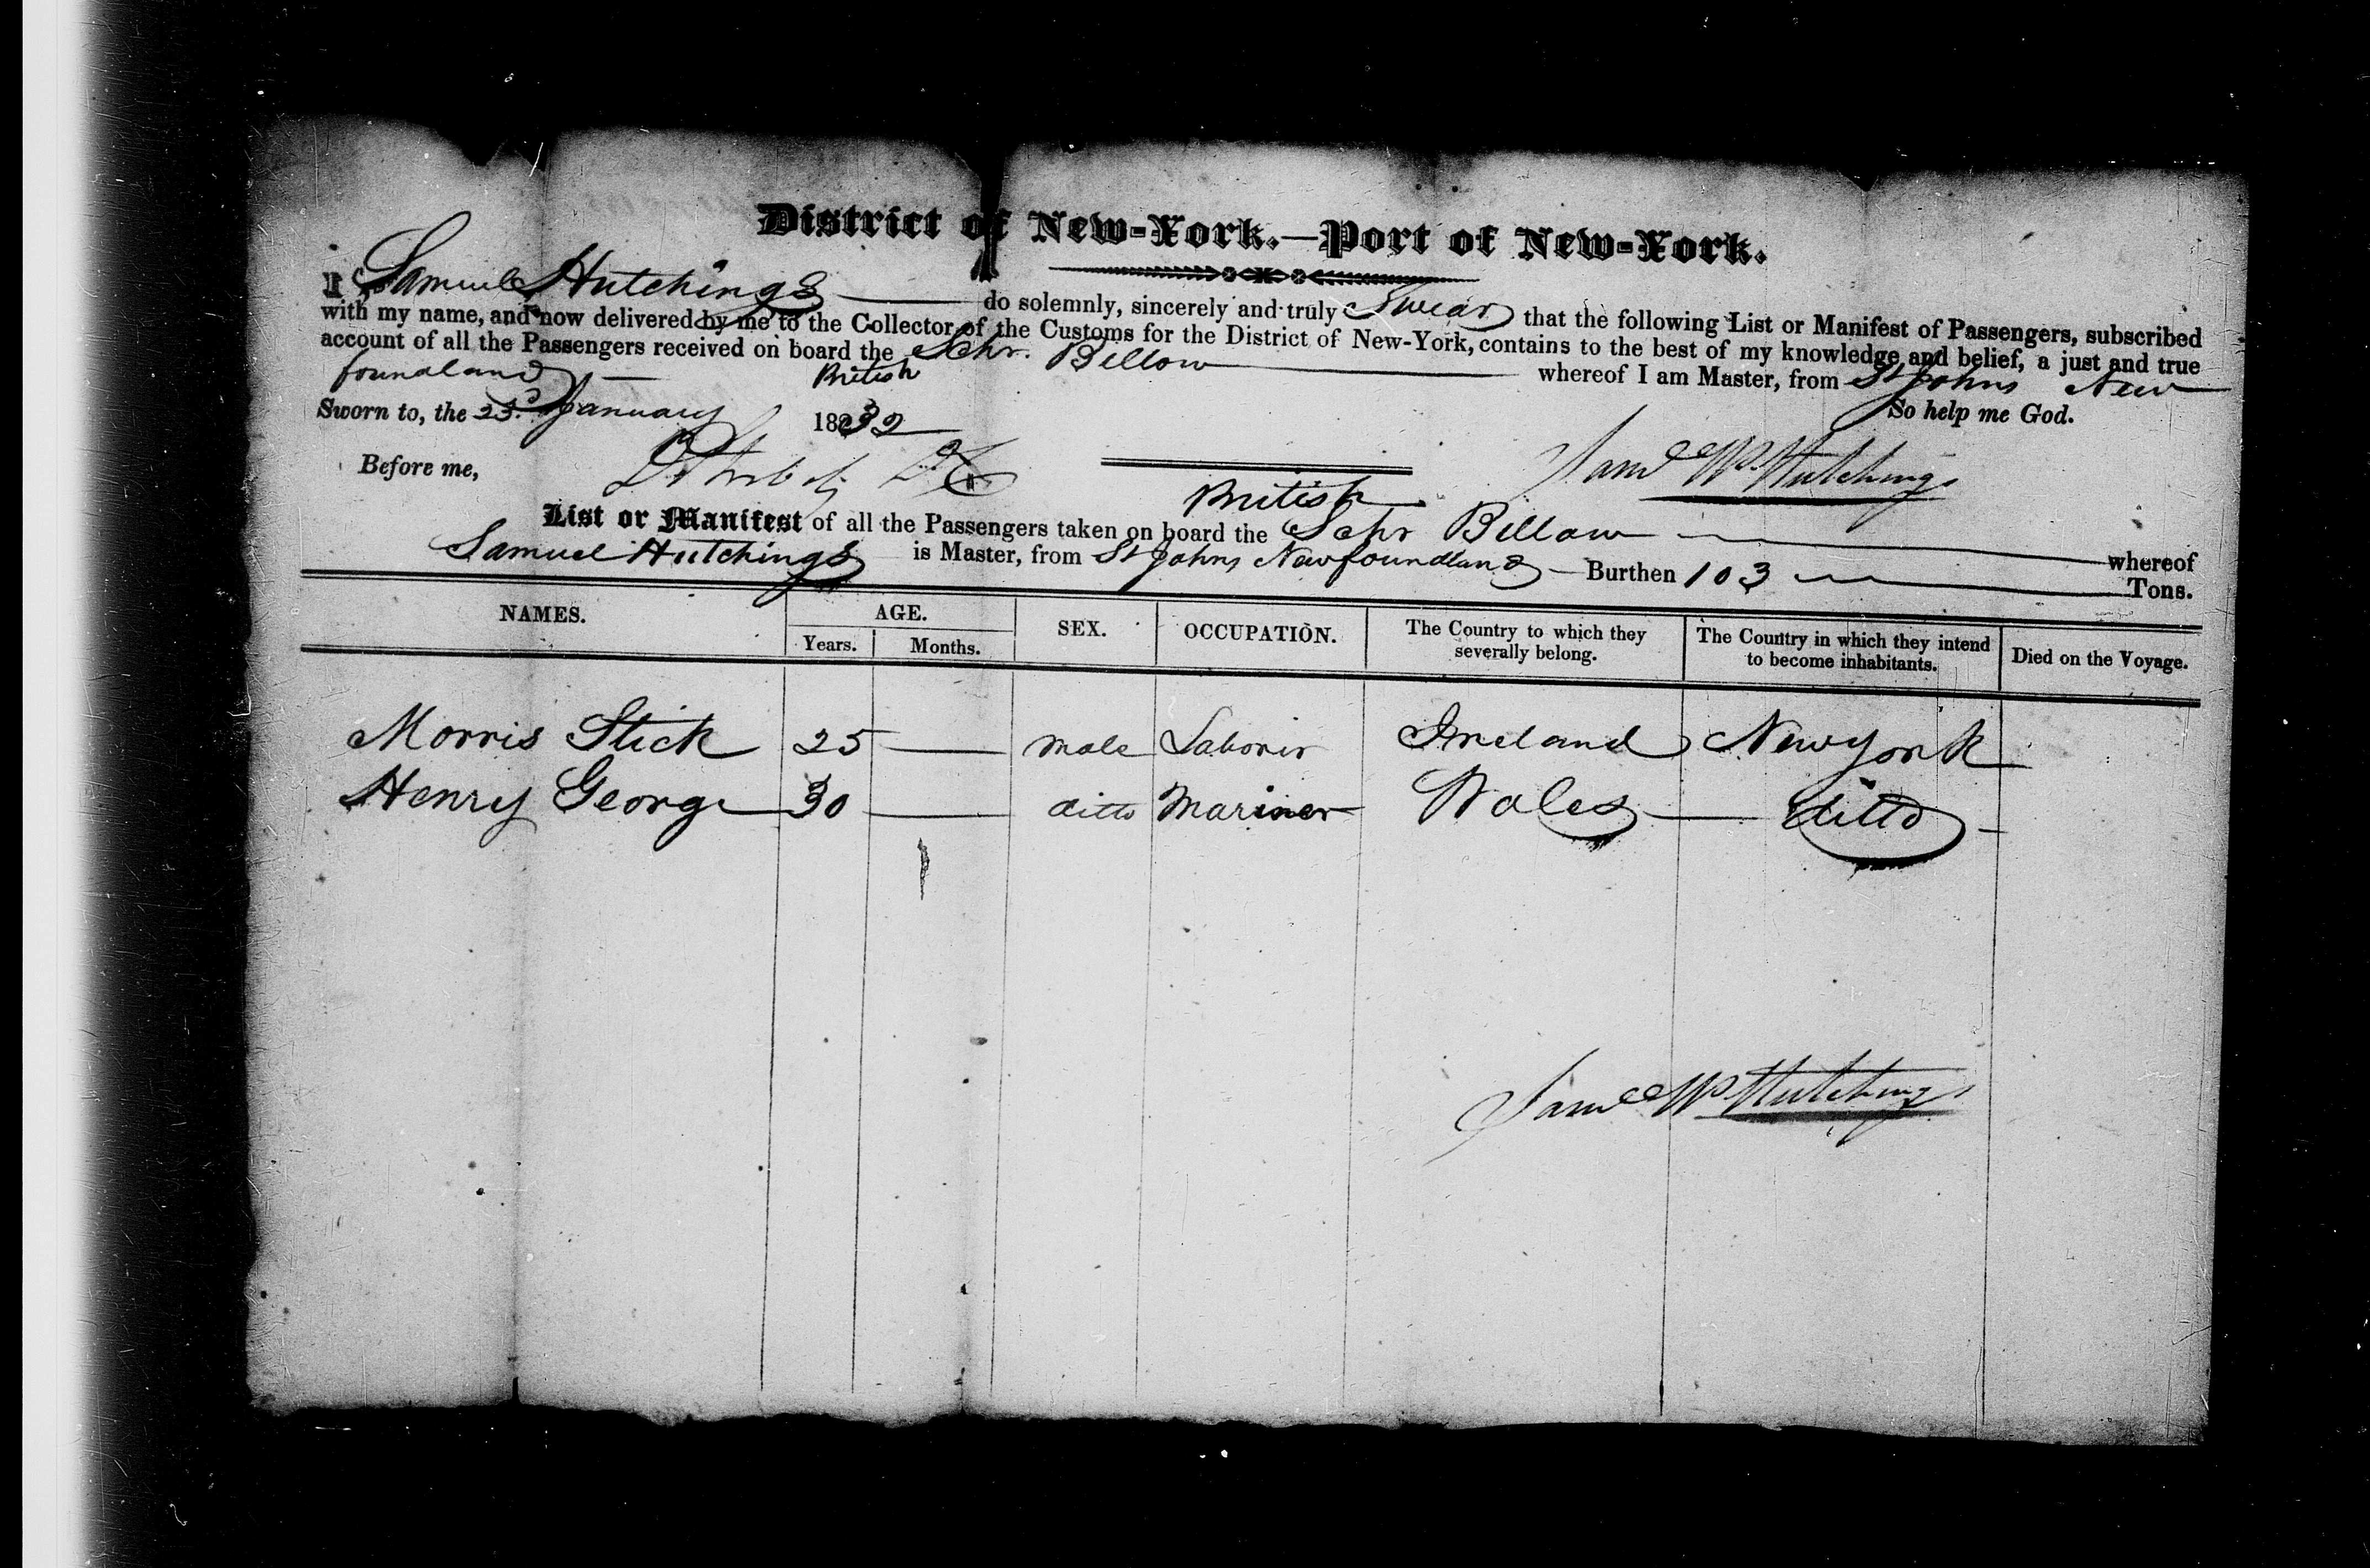 District of New-York.—Port of New-York.
I Samuel Hutchings do solemnly, sincerely and truly Swear that the following List or Manifest of Passengers, subscribed
with my name, and now delivered by me to the Collector of the Customs for the District of New-York, contains to the best of my knowledge and belief, a just and true
account of all the Passengers received on board the British Schr. Billow whereof I am Master, from St Johns New
foundland
So help me God.
Sworn to, the 23.d January 1832
Before me,
Saml W Hutchings
List or Manifest of all the Passengers taken on board the British Schr Billow whereof
Samuel Hutchings is Master, from St Johns Newfoundland Burthen 103 Tons.
NAMES. AGE. SEX. OCCUPATION. The Country to which they severally belong. The Country in which they intend to become inhabitants. Died on the Voyage.
Years. Months.
Morris Stick 25 — male Laborir Ireland New york
Henry George 30 — ditto Mariner Wales — ditto
Saml W Hutchings